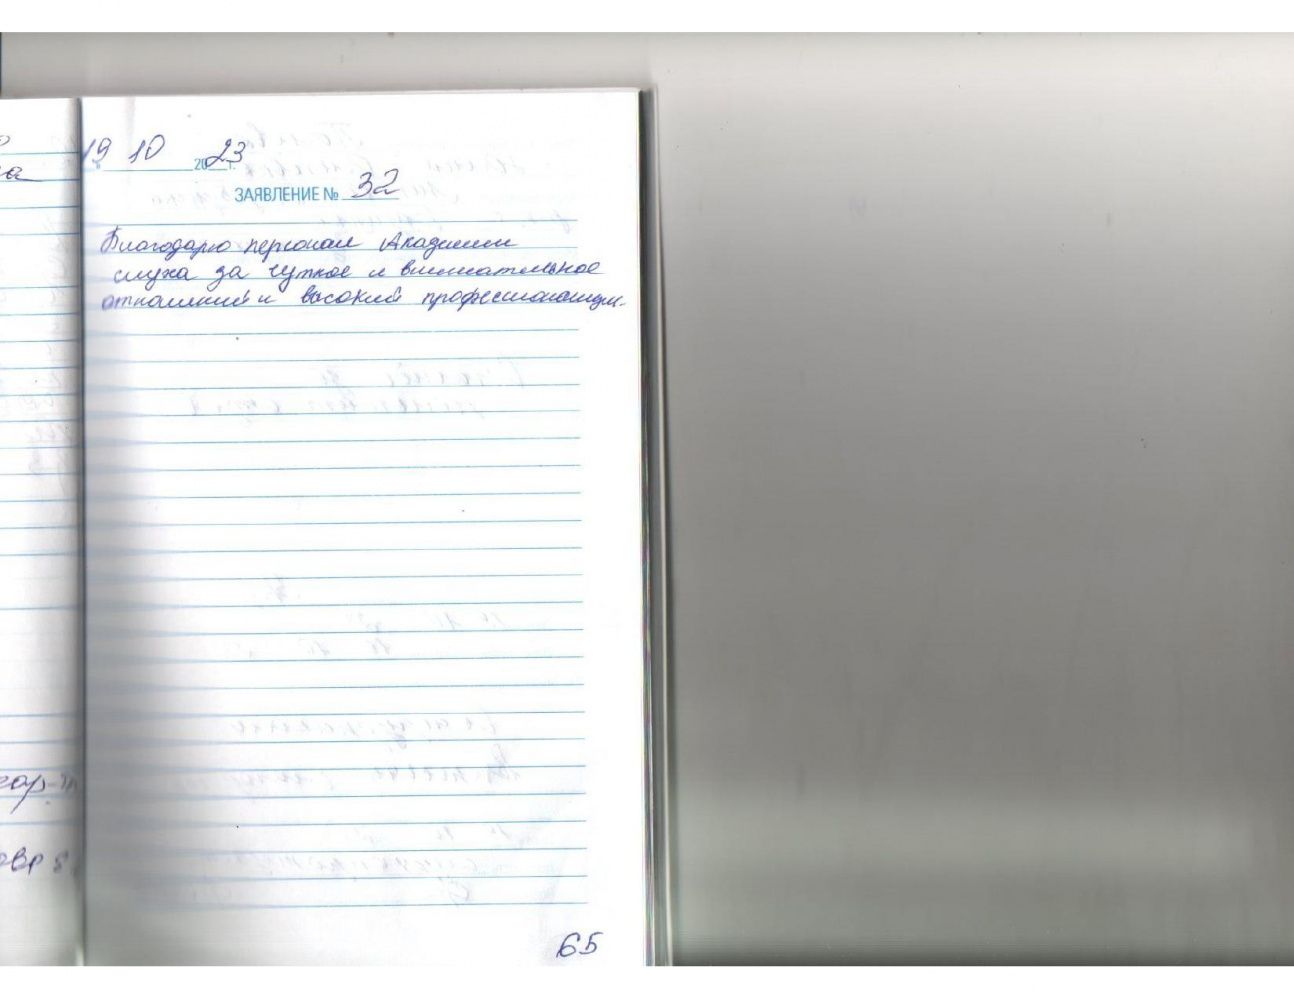 19 10 2023 г.
ЗАЯВЛЕНИЕ № 32
Благодарю персонал Академии
слуха за чуткое и внимательное
отношений и высокий профессионализм.
65